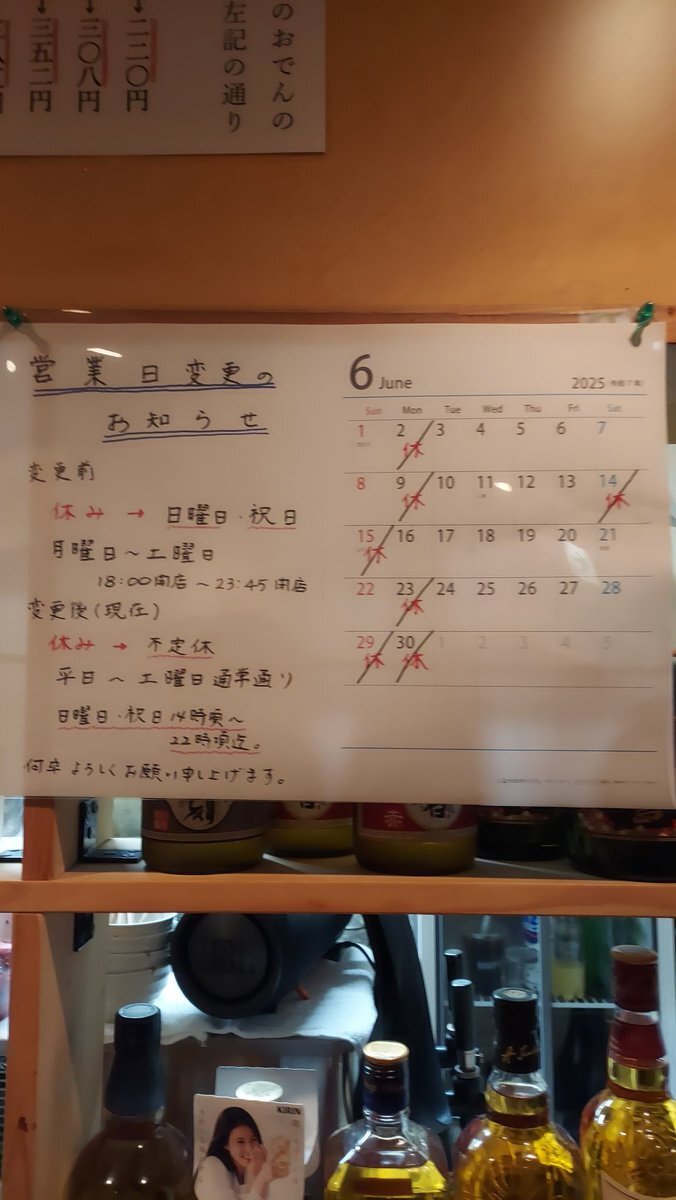 のおでんの
左記の通り
↓二二〇円
↓三〇八円
↓三五二円
営業日変更の
お知らせ
変更前
休み → 日曜日・祝日
月曜日～土曜日
18:00開店～23:45閉店
変更後(現在)
休み → 不定休
平日～土曜日通常通り
日曜日・祝日14時頃～
22時頃迄。
何卒よろしくお願い申し上げます。
6 June 2025
Sun Mon Tue Wed Thu Fri Sat
1 2 3 4 5 6 7
休
8 9 10 11 12 13 14
休 休
15 16 17 18 19 20 21
休
22 23 24 25 26 27 28
休
29 30 1 2 3 4 5
休 休
KIRIN